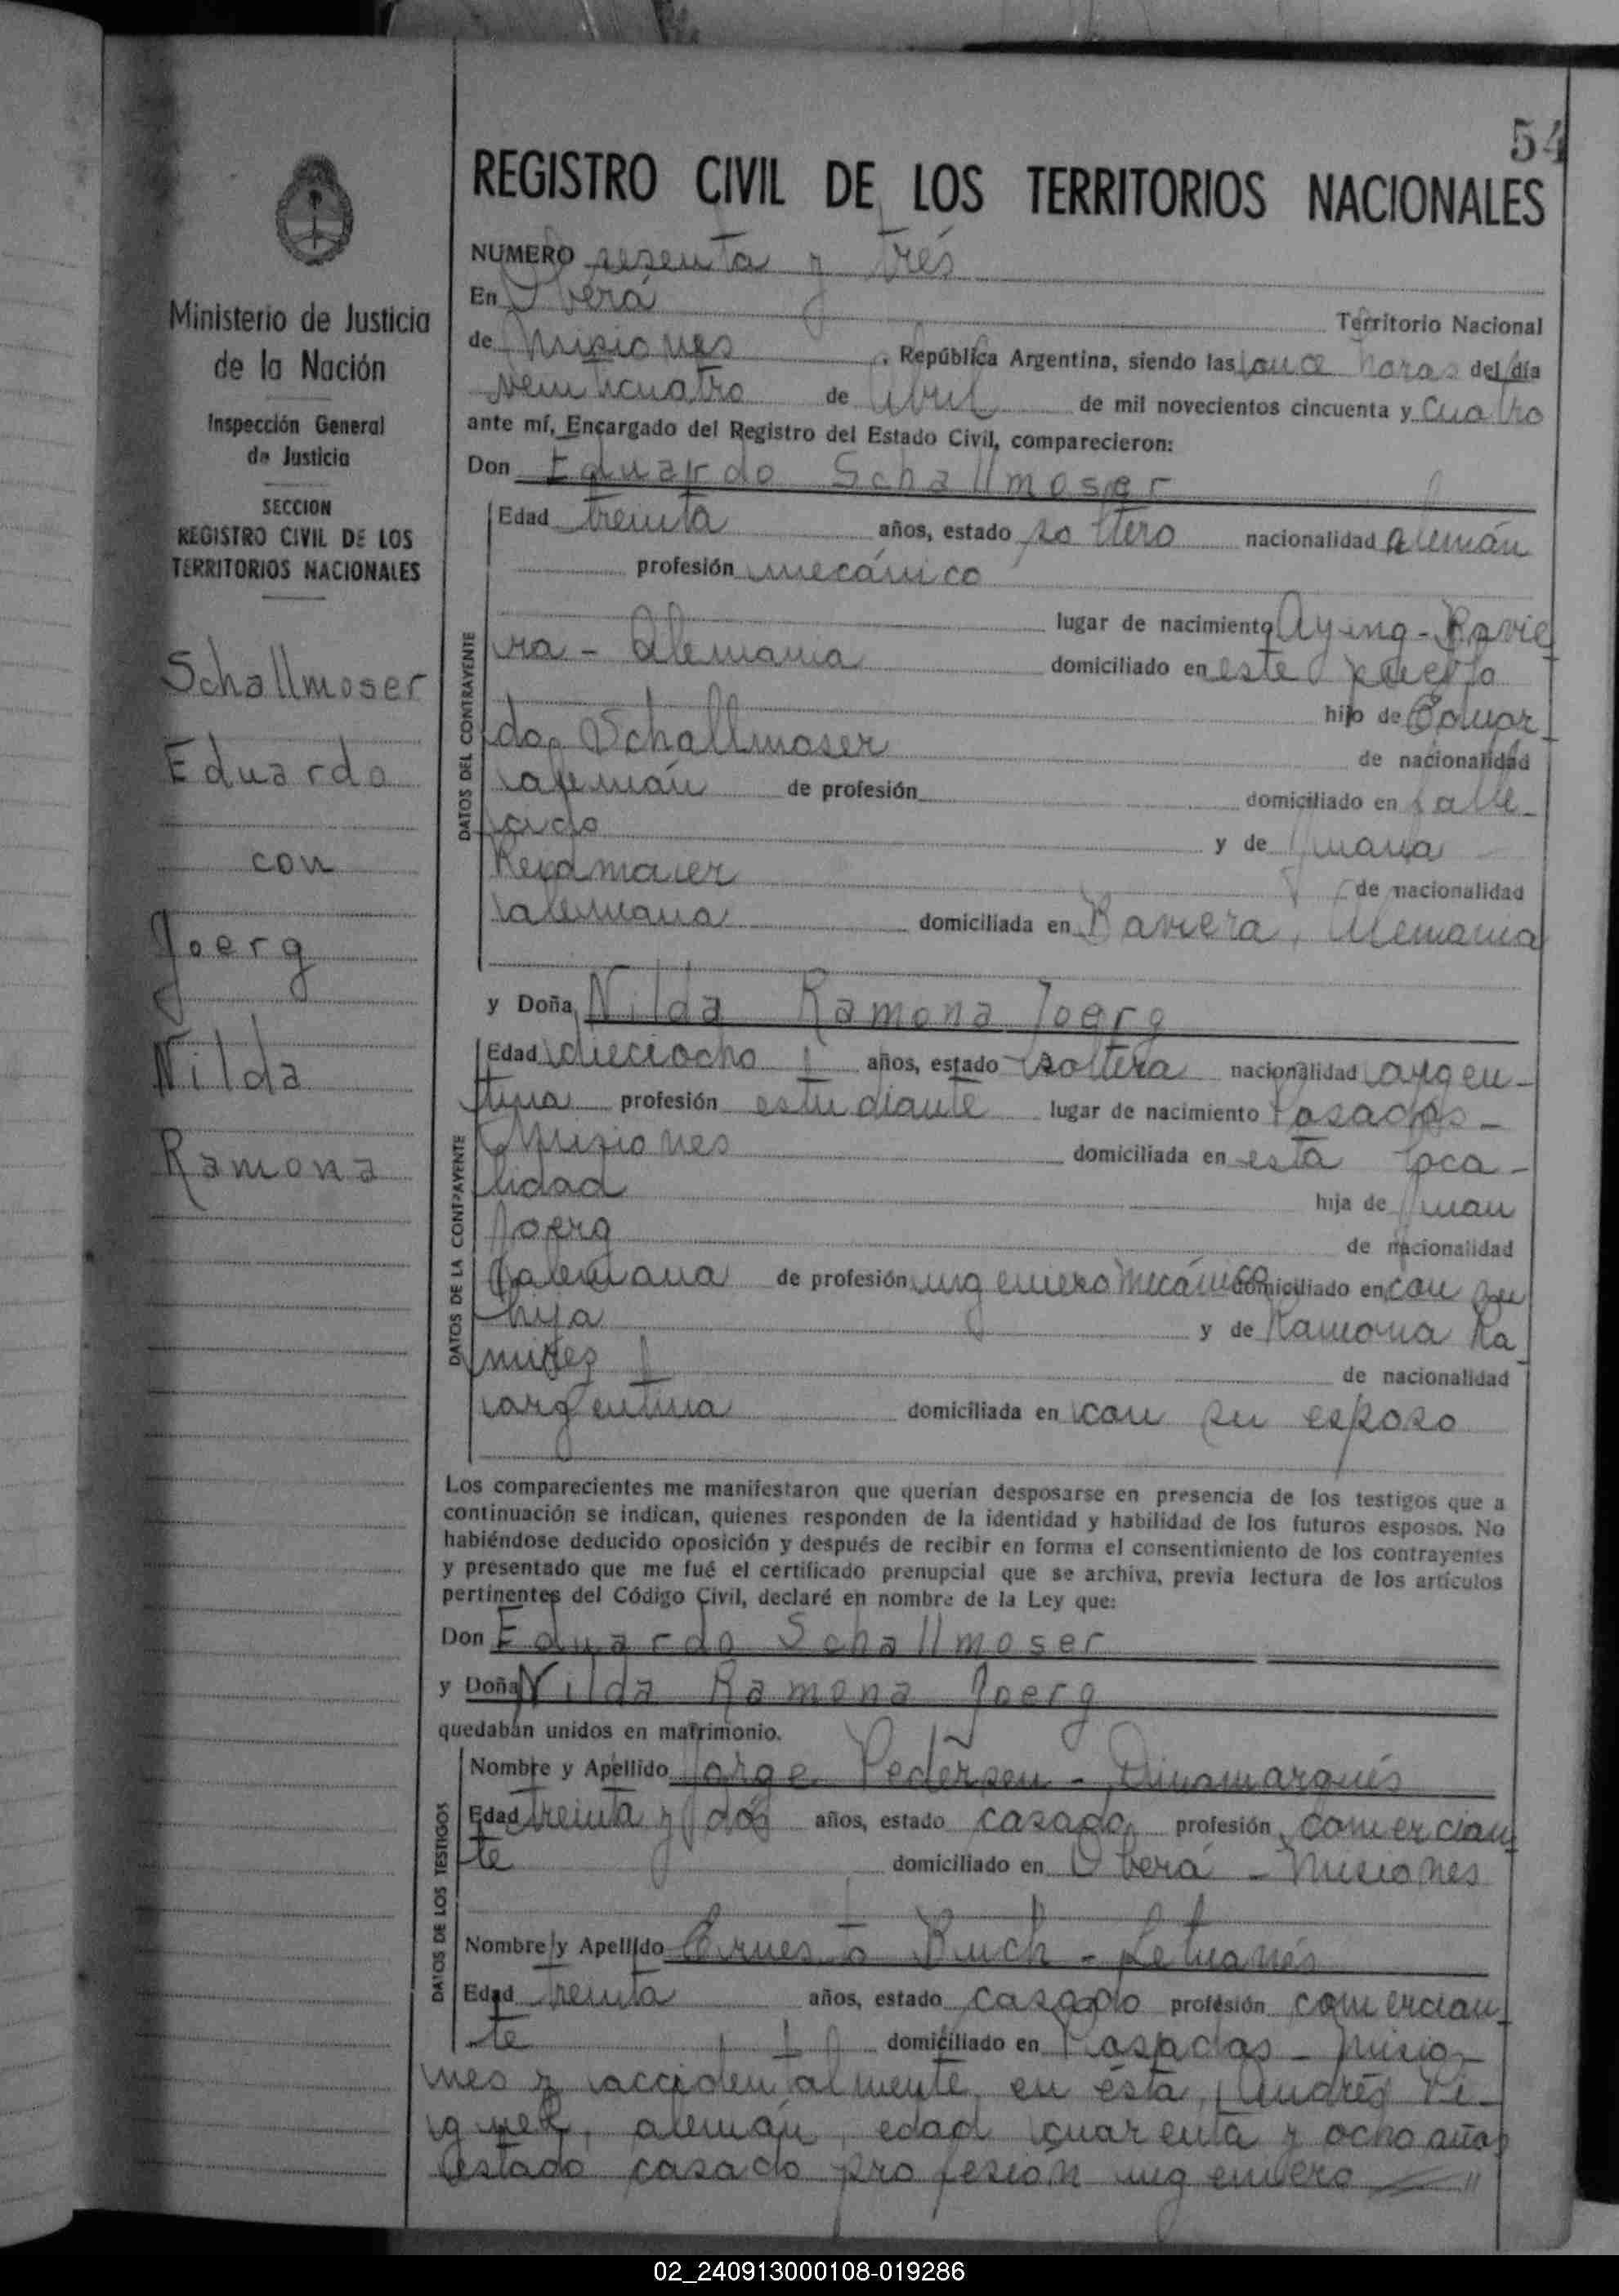 54
REGISTRO CIVIL DE LOS TERRITORIOS NACIONALES
Ministerio de Justicia
de la Nación
Inspección General
de Justicia
SECCION
REGISTRO CIVIL DE LOS
TERRITORIOS NACIONALES
Schallmoser
Eduardo
con
Joerg
Nilda
Ramona
NUMERO sesenta y trés
En Oberá Territorio Nacional
de Misiones , República Argentina, siendo las once horas del día
veinticuatro de Abril de mil novecientos cincuenta y cuatro
ante mí, Encargado del Registro del Estado Civil, comparecieron:
Don Eduardo Schallmoser
DATOS DEL CONTRAYENTE
Edad treinta años, estado soltero nacionalidad alemán
profesión mecánico
lugar de nacimiento Aying - Bavie
ra - Alemania domiciliado en este pueblo
hijo de Eduar
do Schallmoser de nacionalidad
alemán de profesión domiciliado en falle-
cido y de Juana
de nacionalidad
alemana domiciliada en Baviera, Alemania
y Doña Nilda Ramona Joerg
DATOS DE LA CONTRAYENTE
Edad dieciocho años, estado soltera nacionalidad argen-
tina profesión estudiante lugar de nacimiento Posadas -
Misiones domiciliada en esta loca-
lidad hija de Juan
Joerg de nacionalidad
alemana de profesión ingeniero mecánico domiciliado en con su
hija y de Ramona Ra
mirez de nacionalidad
argentina domiciliada en con su esposo
Los comparecientes me manifestaron que querían desposarse en presencia de los testigos que a
continuación se indican, quienes responden de la identidad y habilidad de los futuros esposos. No
habiéndose deducido oposición y después de recibir en forma el consentimiento de los contrayentes
y presentado que me fué el certificado prenupcial que se archiva, previa lectura de los artículos
pertinentes del Código Civil, declaré en nombre de la Ley que:
Don Eduardo Schallmoser
y Doña Nilda Ramona Joerg
quedaban unidos en matrimonio.
DATOS DE LOS TESTIGOS
Nombre y Apellido Jorge Pedersen - Dinamarqués
Edad treinta y dós años, estado casado profesión comercian
te domiciliado en Oberá - Misiones
Nombre y Apellido Ernesto Buch - Letuanés
Edad treinta años, estado casado profesión comercian
te domiciliado en Posadas - Misio-
nes y accidentalmente en ésta, Andrés
alemán, edad cuarenta y ocho años
estado casado profesión ingeniero
02_240913000108-019286